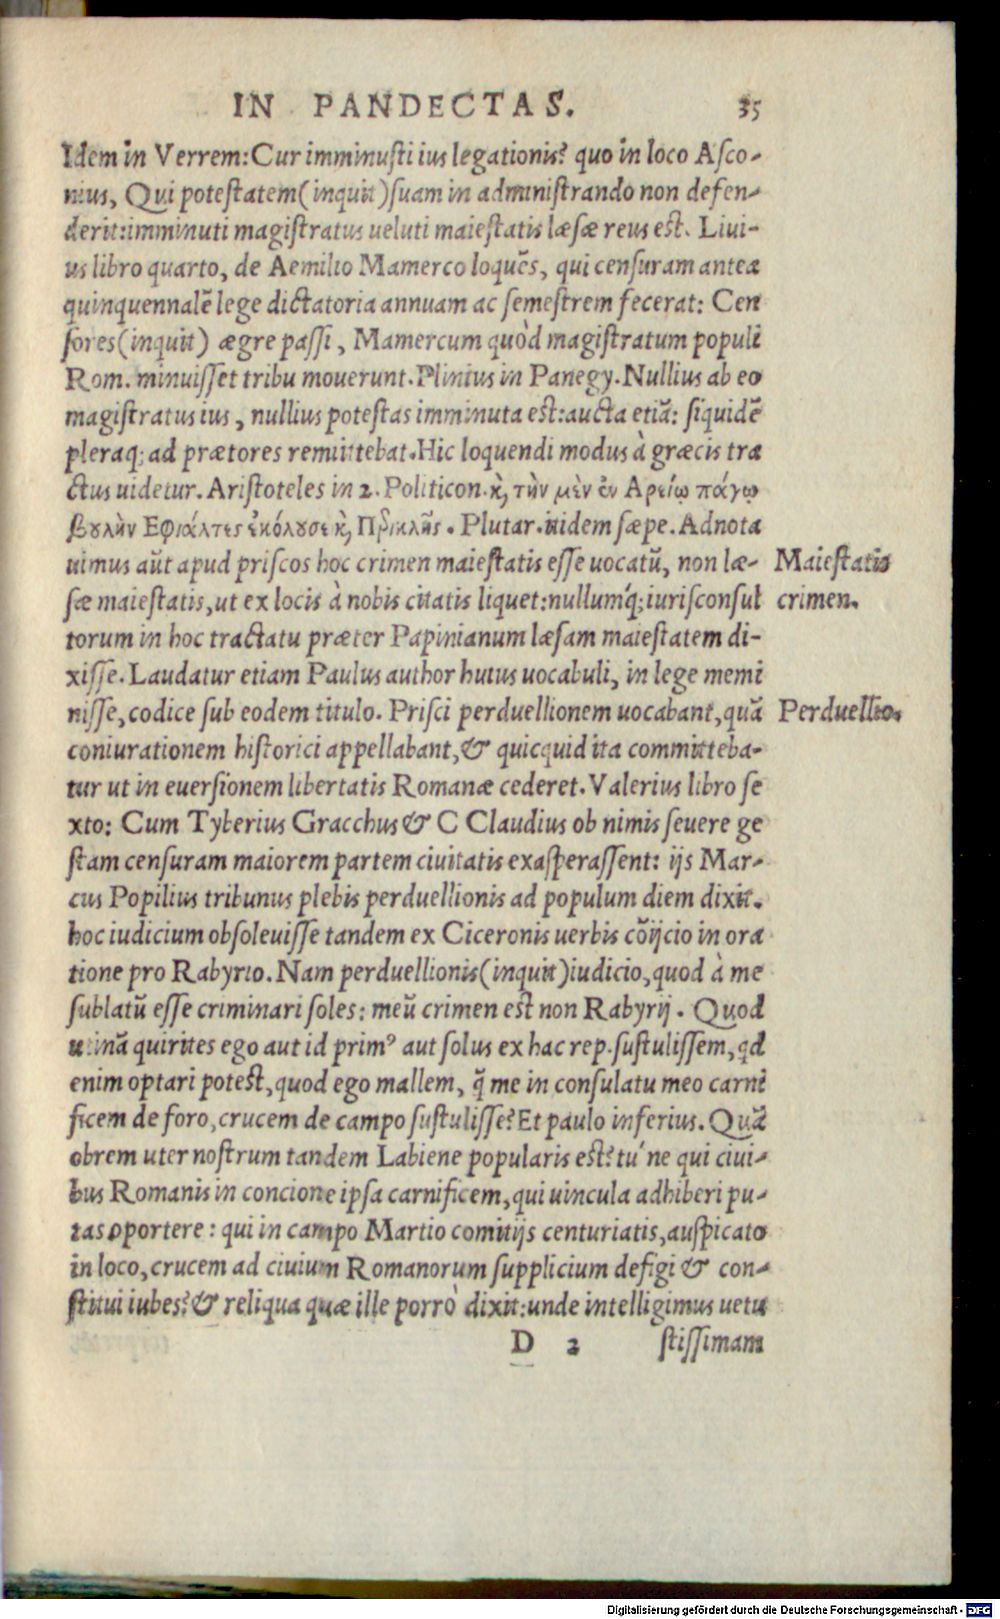 IN PANDECTAS. 35
Idem in Verrem: Cur imminusti ius legationis? quo in loco Asco-
nius, Qui potestatem (inquit) suam in administrando non defen-
derit: imminuti magistratus ueluti maiestatis læsæ reus est. Liui-
us libro quarto, de Aemilio Mamerco loquẽs, qui censuram antea
quinquennalẽ lege dictatoria annuam ac semestrem fecerat: Cen
sores (inquit) ægre passi, Mamercum quòd magistratum populi
Rom. minuisset tribu mouerunt. Plinius in Panegy. Nullius ab eo
magistratus ius, nullius potestas imminuta est: aucta etiã: siquidẽ
pleraq; ad prætores remittebat. Hic loquendi modus à græcis tra
ctus uidetur. Aristoteles in 2. Politicon. ϗ̀, τὴν μὲν ἐν Αρείῳ πάγῳ
βουλὴν Εφιάλτες ἐκόλουσε ϗ̀, Περικλῆς. Plutar. itidem sæpe. Adnota
uimus aũt apud priscos hoc crimen maiestatis esse uocatũ, non læ-
Maiestatis
sæ maiestatis, ut ex locis à nobis citatis liquet: nullumq́; iurisconsul
crimen.
torum in hoc tractatu præter Papinianum læsam maiestatem di-
xisse. Laudatur etiam Paulus author huius uocabuli, in lege memi
nisse, codice sub eodem titulo. Prisci perduellionem uocabant, quã
Perduellio.
coniurationem historici appellabant, & quicquid ita committeba-
tur ut in euersionem libertatis Romanæ cederet. Valerius libro se
xto: Cum Tyberius Gracchus & C Claudius ob nimis seuere ge
stam censuram maiorem partem ciuitatis exasperassent: ijs Mar-
cus Popilius tribunus plebis perduellionis ad populum diem dixit.
hoc iudicium obsoleuisse tandem ex Ciceronis uerbis cõijcio in ora
tione pro Rabyrio. Nam perduellionis (inquit) iudicio, quod à me
sublatũ esse criminari soles: meũ crimen est non Rabyrij. Quod
utinã quirites ego aut id primꝰ aut solus ex hac rep. sustulissem, qd
enim optari potest, quod ego mallem, q̃ me in consulatu meo carni
ficem de foro, crucem de campo sustulisse? Et paulo inferius. Quã
obrem uter nostrum tandem Labiene popularis est? tú ne qui ciui-
bus Romanis in concione ipsa carnificem, qui uincula adhiberi pu-
tas oportere: qui in campo Martio comitijs centuriatis, auspicato
in loco, crucem ad ciuium Romanorum supplicium defigi & con-
stitui iubes? & reliqua quæ ille porrò dixit: unde intelligimus uetu
D 2 stissimam
Digitalisierung gefördert durch die Deutsche Forschungsgemeinschaft - DFG